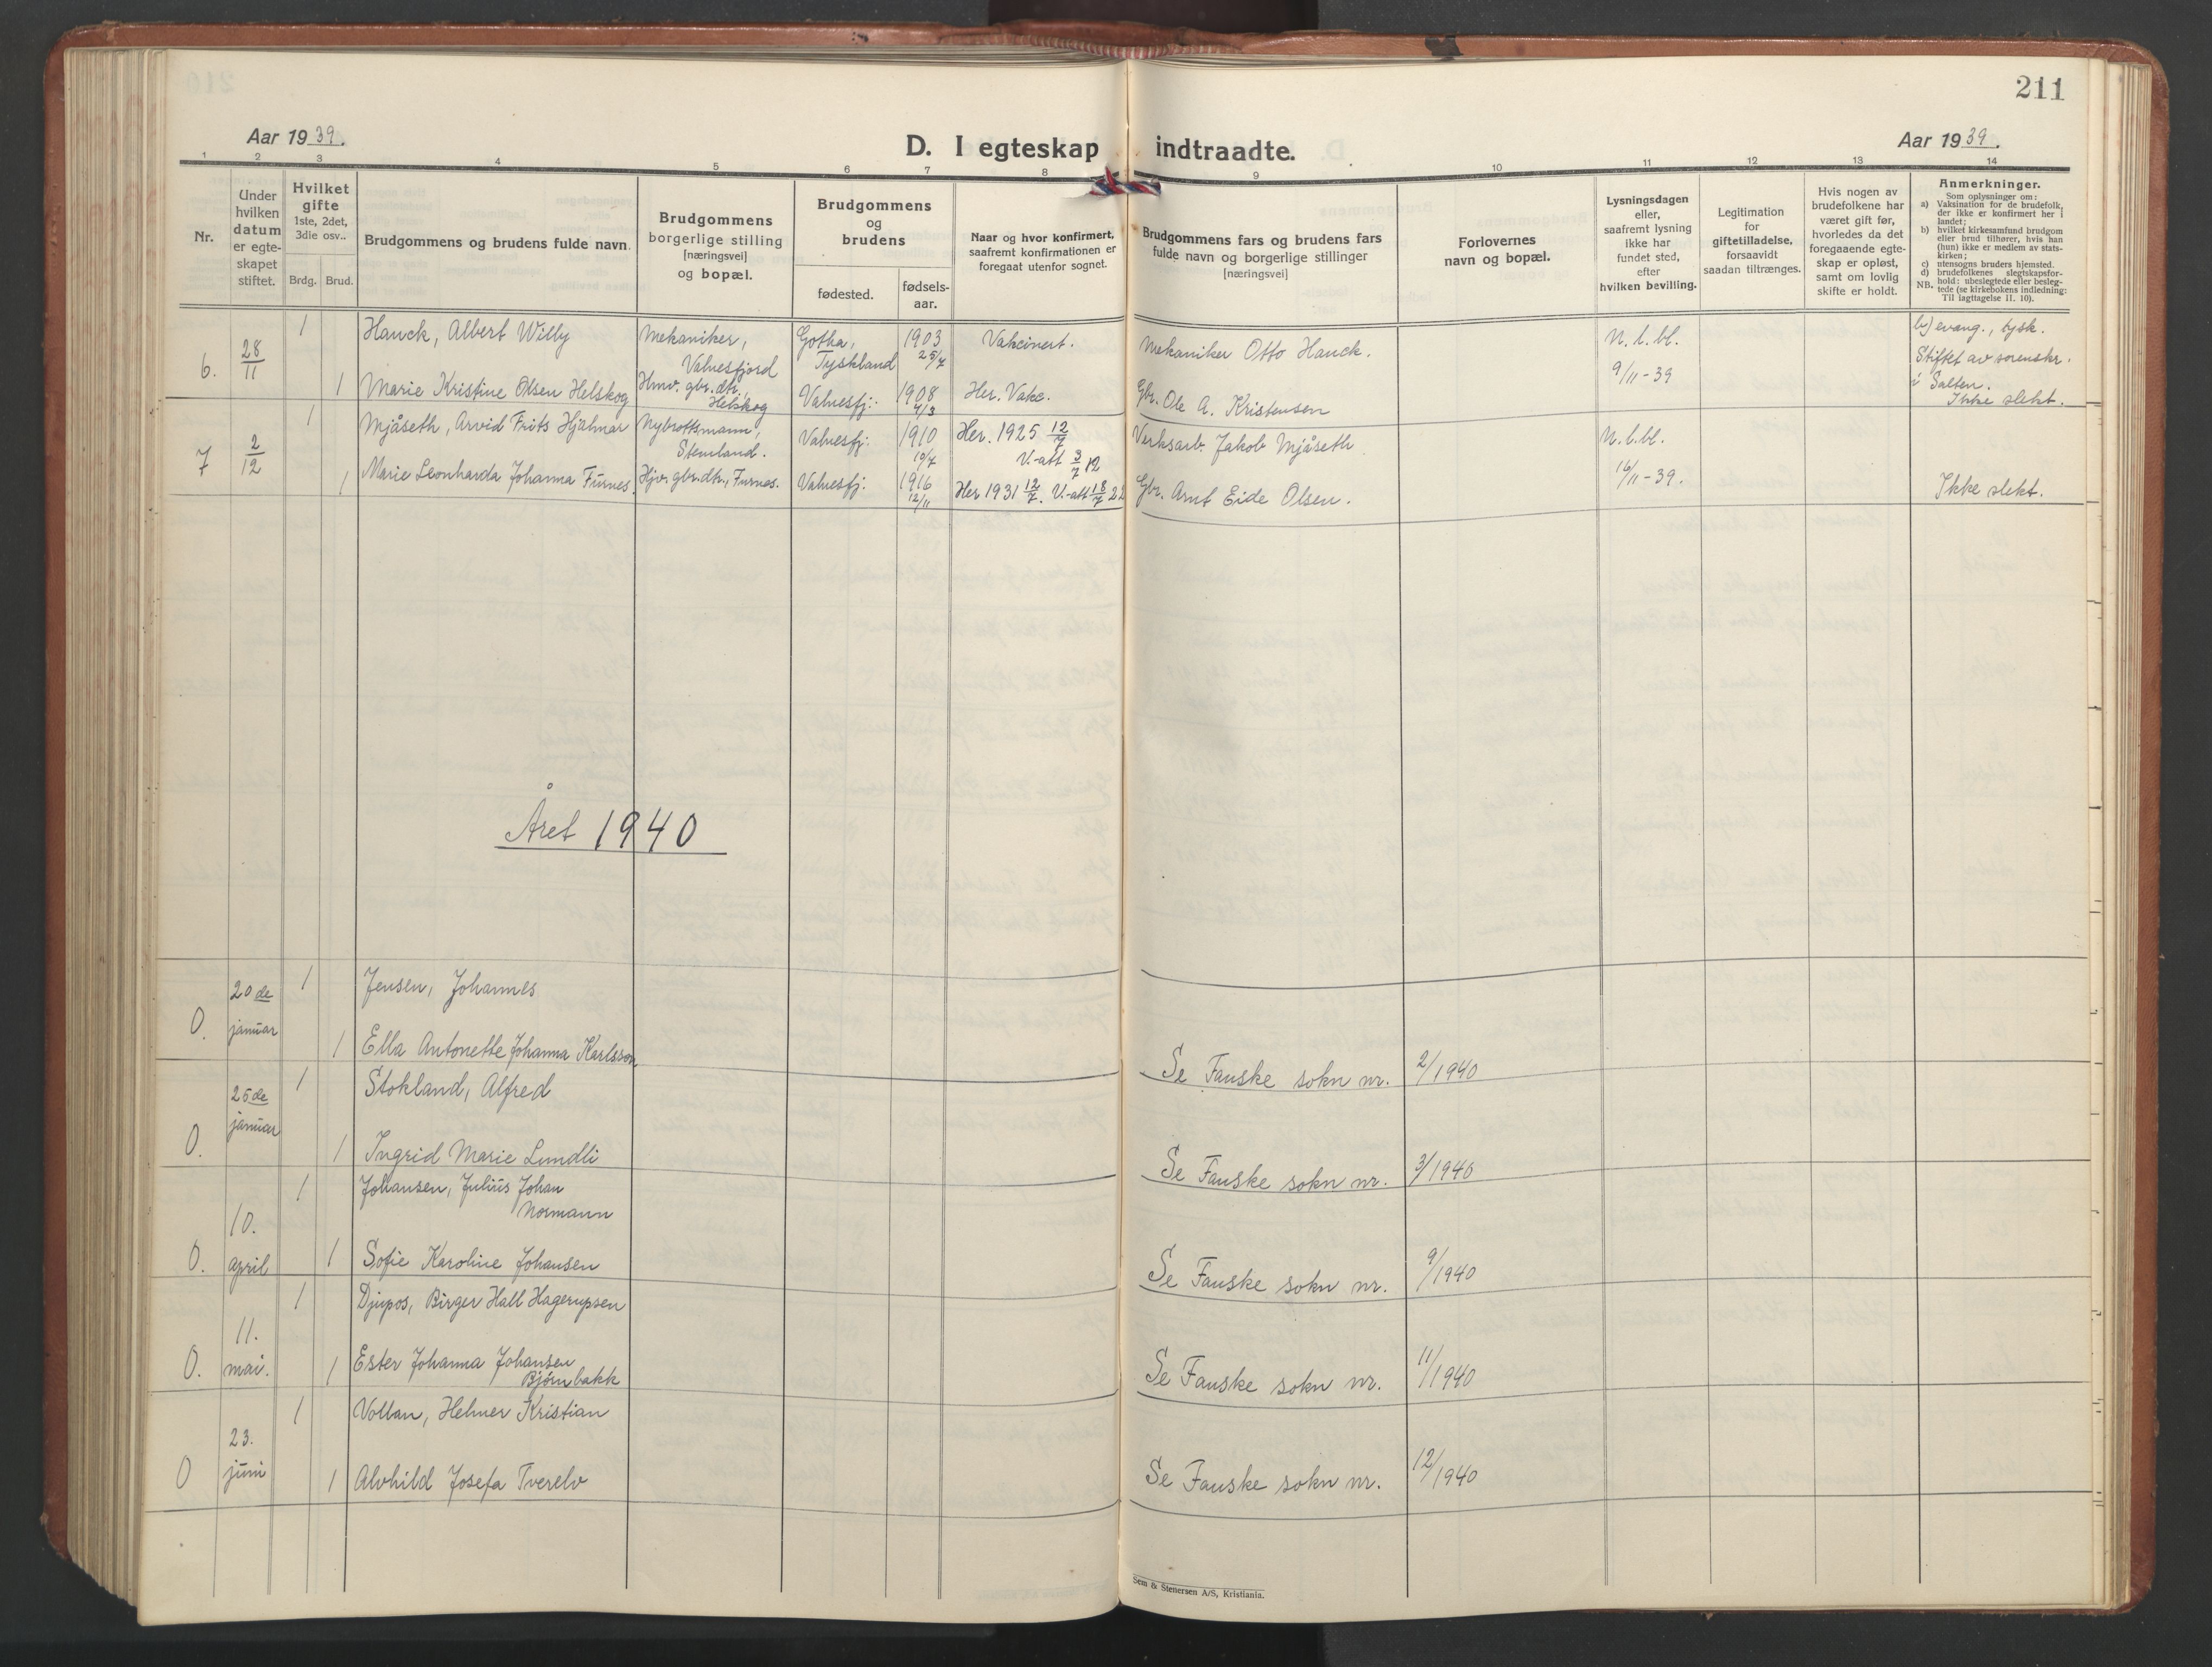 211
Aar 1939.
D. I egteskap indtraadte.
Aar 1939.
1 2 3 4 5 6 7 8 9 10 11 12 13 14
Nr.
Under hvilken datum er egteskapet stiftet.
Hvilket gifte
1ste, 2det, 3die osv..
Brdg. Brud.
Brudgommens og brudens fulde navn.
Brudgommens borgerlige stilling [næringsvei] og bopæl.
Brudgommens og brudens
fødested.
fødselsaar.
Naar og hvor konfirmert, saafremt konfirmationen er foregaat utenfor sognet.
Brudgommens fars og brudens fars fulde navn og borgerlige stillinger [næringsvei]
Forlovernes navn og bopæl.
Lysningsdagen eller, saafremt lysning ikke har fundet sted, efter hvilken bevilling.
Legitimation for giftetilladelse, forsaavidt saadan tiltrænges.
Hvis nogen av brudefolkene har været gift før, hvorledes da det foregaaende egteskap er opløst, samt om lovlig skifte er holdt.
Anmerkninger.
Som oplysninger om:
a) Vaksination for de brudefolk, der ikke er konfirmert her i landet;
b) hvilket kirkesamfund brudgom eller brud tilhører, hvis han (hun) ikke er medlem av statskirken;
c) utensogns bruders hjemsted.
d) brudefolkenes slegtskapsforhold: ubeslegtede eller beslegtede (se kirkebokens indledning: Til iagttagelse II. 10).
NB.
6. 28/11 1 Hauck, Albert Willy Mekaniker, Valnesfjord Gotha, Tyskland 1903 25/7 Vakcinert. Mekaniker Otto Hauck. N. l. bl. 9/11-39 b) evang., tysk. Stiftet av sorenskr. i Salten.
1 Marie Kristine Olsen Helskog Hmv. gbr. dtr. Helskog Valnesfj. 1908 4/3 Her. Vakc. Gbr. Ole A. Kristensen Ikke slekt.
7 2/12 1 Mjåseth, Arvid Frits Hjalmar Nybrottsmann, Stemland. Valnesfj. 1910 10/7 Her. 1925 12/7 V.-att 3/7 12 Verksarb. Jakob Mjåseth N.l.bl. 16/11-39.
1 Marie Leonharda Johanna Furnes. Hjv. gbr.dtr., Furnes. Valnesfj. 1916 12/11 Her 1931 12/7. V.-att 18/7 22 Gbr. Arnt Eide Olsen. Ikke slekt.
Året 1940
0. 20de januar 1 Jensen, Johannes
1 Ella Antonette Johanna Karlsson Se Fauske sokn nr. 2/1940
0. 25de januar 1 Stokland, Alfred
1 Ingrid Marie Lundli Se Fauske sokn nr. 3/1940
0. 10. april 1 Johansen, Julius Johan Normann
1 Sofie Karoline Johansen Se Fauske sokn nr. 9/1940
0. 11. mai. 1 Djupos, Birger Hall Hagerupsen
1 Ester Johanna Johansen Bjørnbakk Se Fauske sokn nr. 11/1940
0 23. juni 1 Vollan, Helmer Kristian
1 Alvhild Josefa Tverelv Se Fauske sokn nr. 12/1940
Sem & Stenersen A/S, Kristiania.